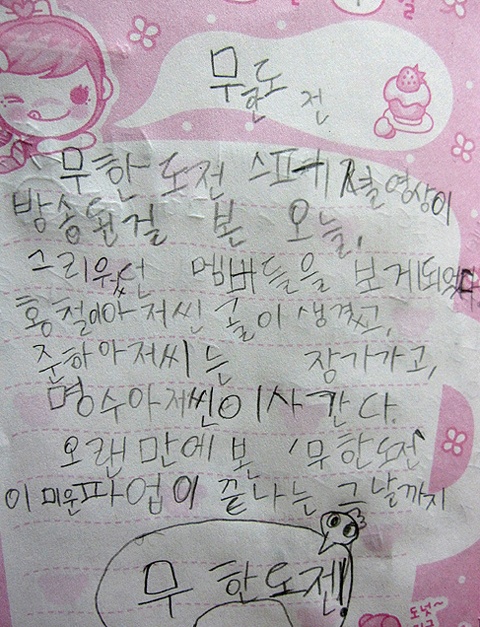 무한도전
무한도전 스페셜영상이
방송된걸 본 오늘,
그리웠던 멤버들을 보게되었다.
홍철이아저씬 골이 생겼고,
준하아저씨는 장가가고,
명수아저씬 이사 간다.
오랜만에 본 '무한도전'
이 미운파업이 끝나는 그날까지
무한도전!
도넛~